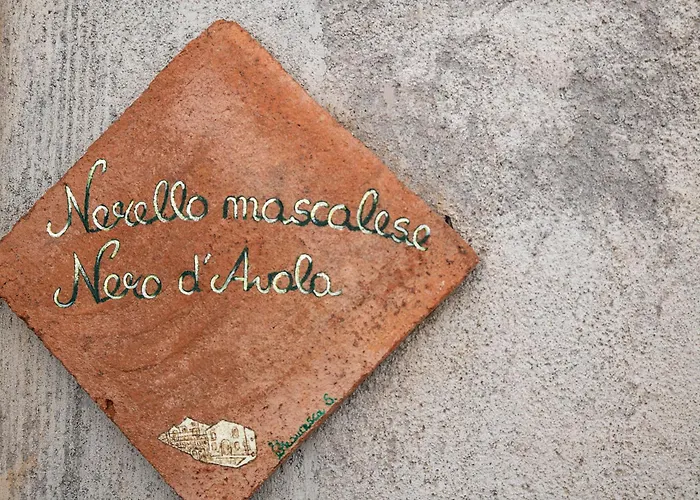 Nerello mascalese
Nero d'Avola